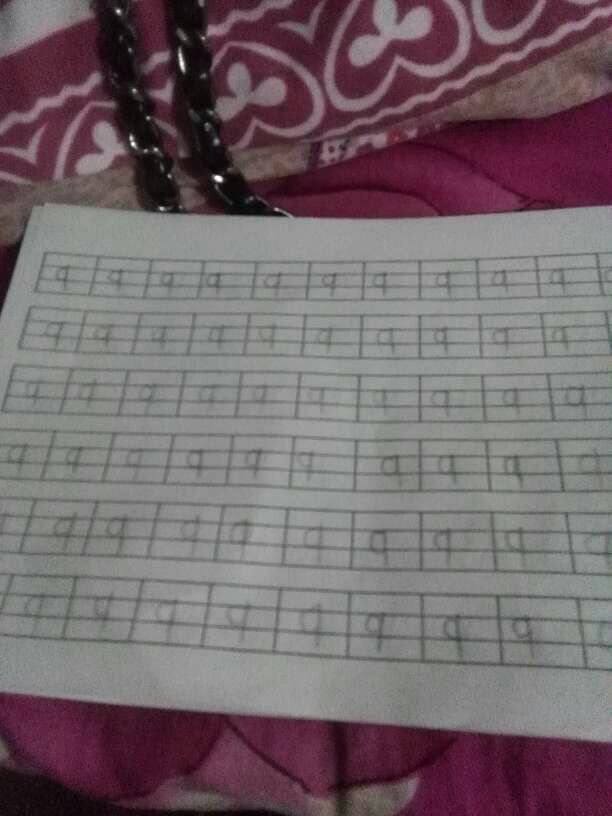 q q q q q q q q q q
q q q q q q q q q q
q q q q q q q q q q
q q q q q q q q q q
q q q q q q q q q
q q q q q q q q